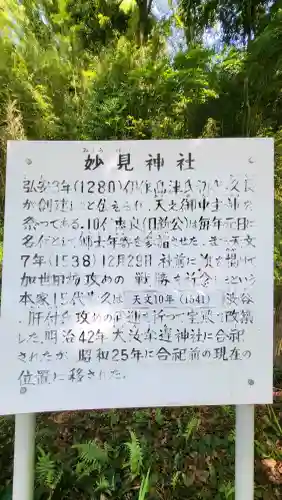 みょうけん
妙見神社
弘安3年(1280)伊作島津氏初代久長
が創建したと伝えられ、天之御中主神を
祭っている。10代忠良(日新公)は毎年元日に
名代として 年寄を参詣させた。また天文
7年(1538)12月29日 社前に
加世田城攻めの戦勝を祈念したという
本家15代貴久は天文10年(1541) 渋谷
、肝付を攻めの
した。明治42年大汝牟遅神社に合祀
されたが 昭和25年に合祀前の現在の
位置に移された。